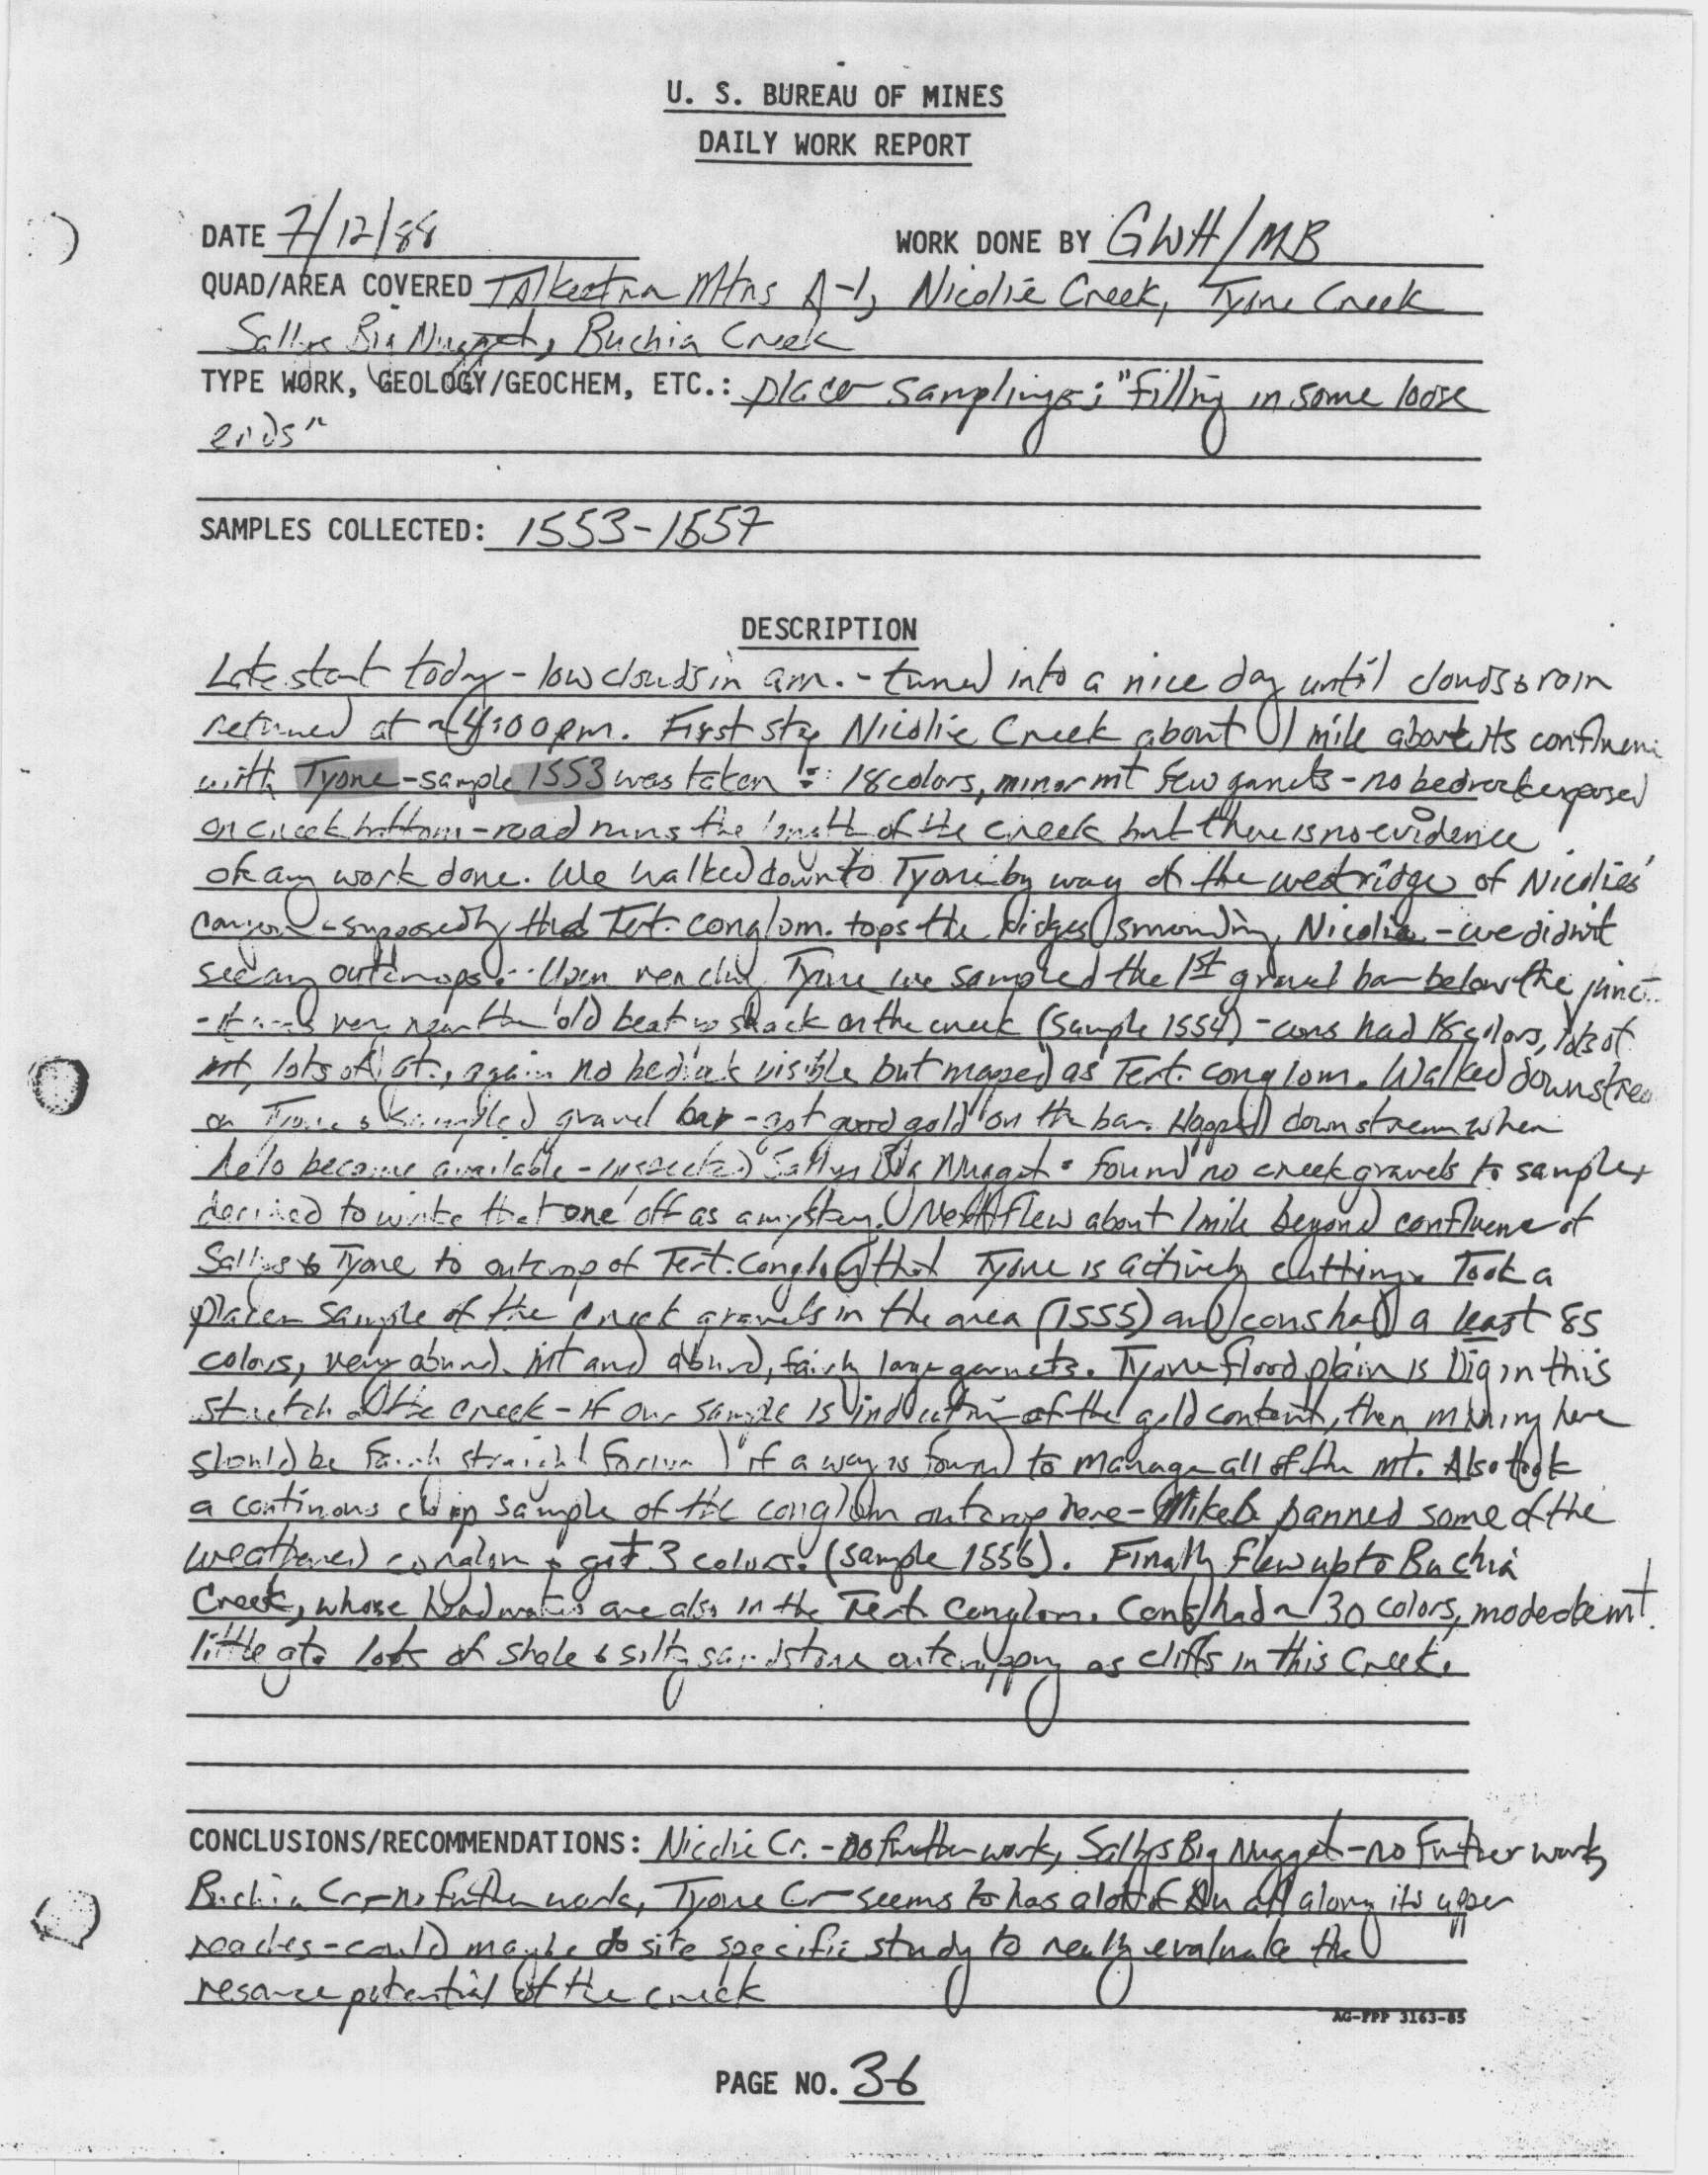 U. S. BUREAU OF MINES
DAILY WORK REPORT
DATE 7/12/88 WORK DONE BY GWH/MB
QUAD/AREA COVERED Talkeetna Mtns A-1, Nicolie Creek, Tyone Creek
Sallys Big Nugget, Buchia Creek
TYPE WORK, GEOLOGY/GEOCHEM, ETC.: placer samplings; "filling in some loose
ends"
SAMPLES COLLECTED: 1553-1557
DESCRIPTION
Late start today - low clouds in am. - turned into a nice day until clouds & rain
returned at ~4:00pm. First stop Nicolie Creek about 1 mile above its confluenc
with Tyone - sample 1553 was taken : 18 colors, minor mt few garnets - no bedrock exposed
on creek bottom - road runs the length of the creek but there is no evidence
of any work done. We walked down to Tyone by way of the west ridge of Nicolies'
canyon - supposedly the Tert. conglom. tops the ridges surrounding Nicolie - we didn't
see any outcrops. Upon reaching Tyone we sampled the 1st gravel bar below the junc.
- it was very near the old beat up shack on the creek (Sample 1554) - cons had 18 colors, lots of
mt, lots of gt., again no bedrock visible but mapped as Tert. conglom. Walked downstrea
on Tyone & sampled gravel bar - got good gold on the bar. Hopped downstream when
helo became available - inspected Sallys Big Nugget - found no creek gravels to sample,
decided to write that one off as a mystery. Next flew about 1 mile beyond confluence of
Sallys & Tyone to outcrop of Tert. conglom that Tyone is actively cutting. Took a
placer sample of the creek gravels in the area (1555) and cons had a least 85
colors, very abund. mt and abund, fairly large garnets. Tyone flood plain is big in this
stretch of the creek - if our sample is indicative of the gold content, then mining here
should be fairly straight forward if a way is found to manage all of the mt. Also took
a continous chip sample of the conglom outcrop here - Mike B. panned some of the
weathered conglom & got 3 colors. (sample 1556). Finally flew up to Buchia
Creek, whose headwaters are also in the Tert conglom. Cons had ~ 30 colors, moderate mt.
little gt. lots of shale & silty sandstone outcropping as cliffs in this Creek.
CONCLUSIONS/RECOMMENDATIONS: Nicolie Cr. - no further work, Sallys Big Nugget - no further work,
Buchia Cr - no further work, Tyone Cr - seems to has a lot of Au all along its upper
reaches - could maybe do site specific study to really evaluate the
resource potential of the creek
AG-FPP 3163-85
PAGE NO. 36